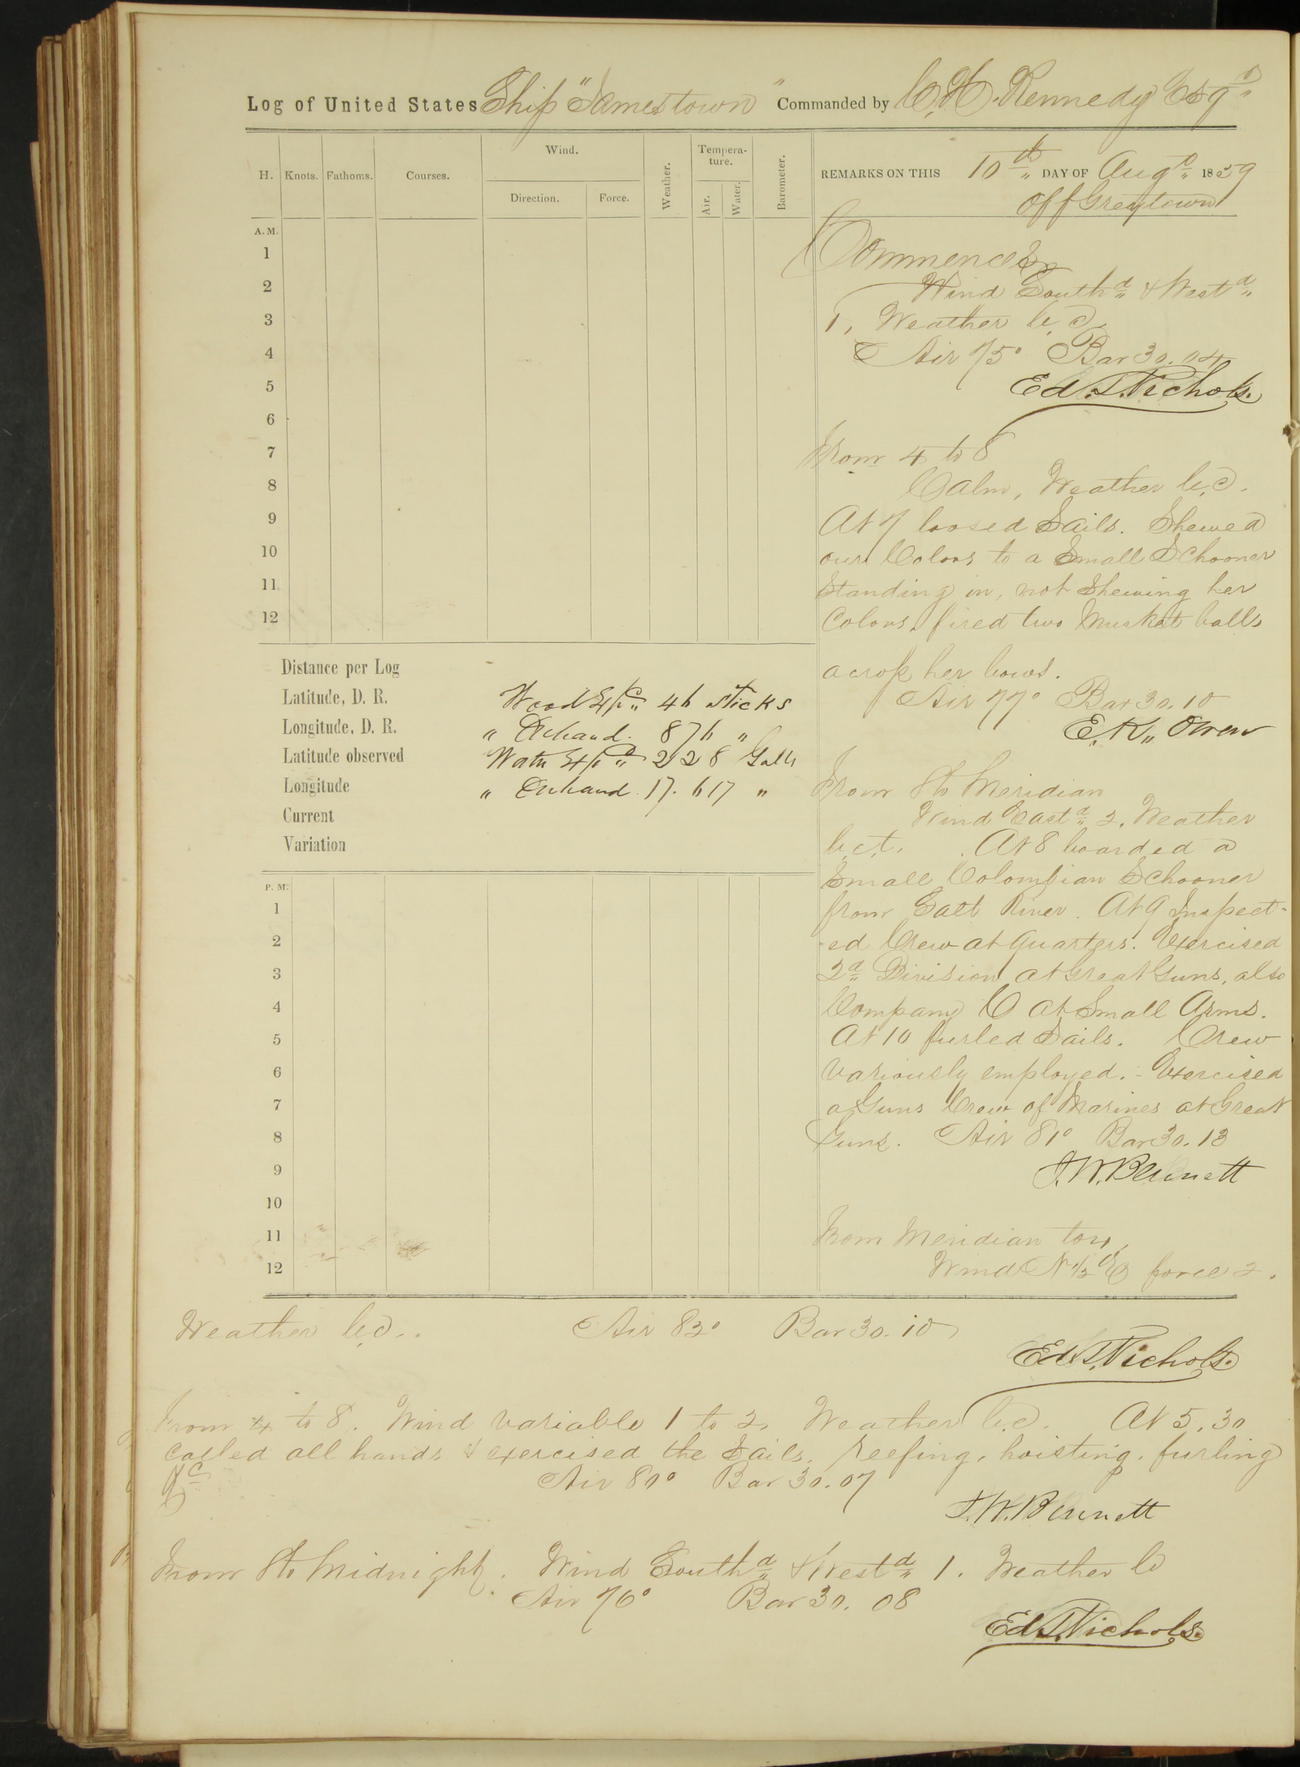 Log of United States Ship "Jamestown" Commanded by C. H. Kennedy Esqr
H. Knots. Fathoms. Courses. Wind. Direction. Force. Weather. Tempera-ture. Air. Water. Barometer.
REMARKS ON THIS 10th DAY OF Augt 1859
Off Greytown
A. M.
1
2
3
4
5
6
7
8
9
10
11
12
Commences
Wind Southd & Westd
1, Weather b.c.
Air 75° Bar 30.04
Ed. T. Nichols.
From 4 to 8
Calm, Weather b.c.
At 7 loosed Sails. Shewed
our Colors to a Small Schooner
Standing in, not Shewing her
Colors, fired two Musket balls
across her bows.
Air 77° Bar 30.10
E. K. Owen
Distance per Log
Latitude, D. R.
Longitude, D. R.
Latitude observed
Longitude
Current
Variation
Wood Expd 46 sticks
" Onhand. 876 "
Watr Expd 228 Galls
" Onhand. 17.617 "
From 8 to Meridian
Wind Eastd 2. Weather
b.c.t. At 8 boarded a
Small Colombian Schooner
from Salt River. At 9 Inspect-
-ed Crew at Quarters. Exercised
2d Division at Great Guns, also
Company C at Small Arms.
At 10 furled Sails. Crew
variously employed. - Exercised
a Guns Crew of Marines at Great
Guns. Air 81° Bar 30.13
J. W. Bennett
P. M.
1
2
3
4
5
6
7
8
9
10
11
12
From Meridian to 4,
Wind N 1/2 E force 2.
Weather b.c. Air 82° Bar 30.10
Ed. T. Nichols.
From 4 to 8. Wind variable 1 to 2. Weather b.c. At 5.30
called all hands & exercised the Sails, reefing, hoisting, furling
&c Air 80° Bar 30.07
J. W. Bennett
From 8 to Midnight. Wind Southd & Westd 1. Weather bc
Air 76° Bar 30.08
Ed. T. Nichols.